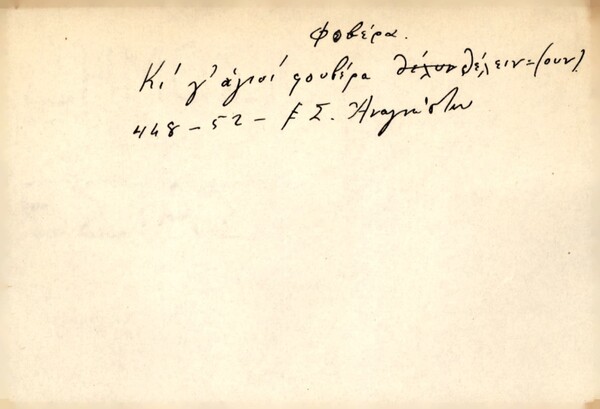 Φοβέρα.
Κι' γ' άγιοί φουβέρα θέλουν θέλειν=(ουν).
448-52- Σ. Αναγνώστου